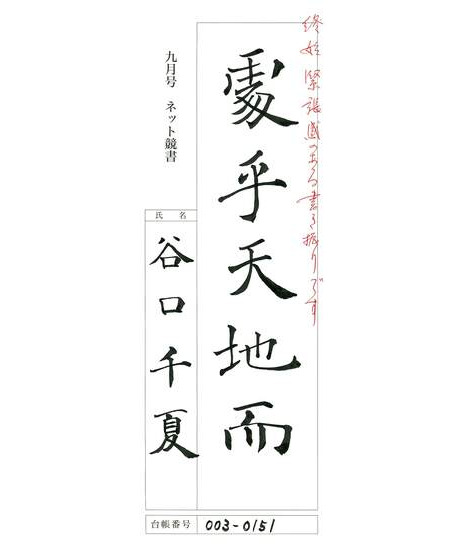 終始緊張感のある書き振りです
處乎天地而
九月号 ネット競書
氏名
谷口千夏
台帳番号 003-0151